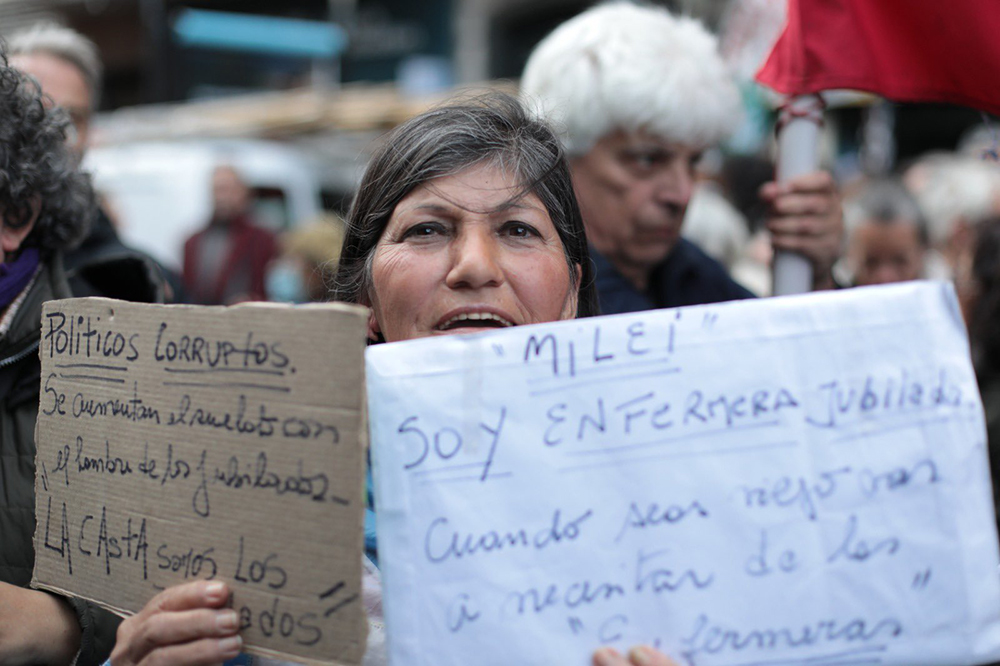 Politicos Corruptos.
Se aumentan el sueldo con
"el hambre de los Jubilados –
LA CAstA somos los
ados"
"MILEI"
SOY ENFERMERA Jubilada.
Cuando seas viejo vas
a necesitar de las
fermeras"